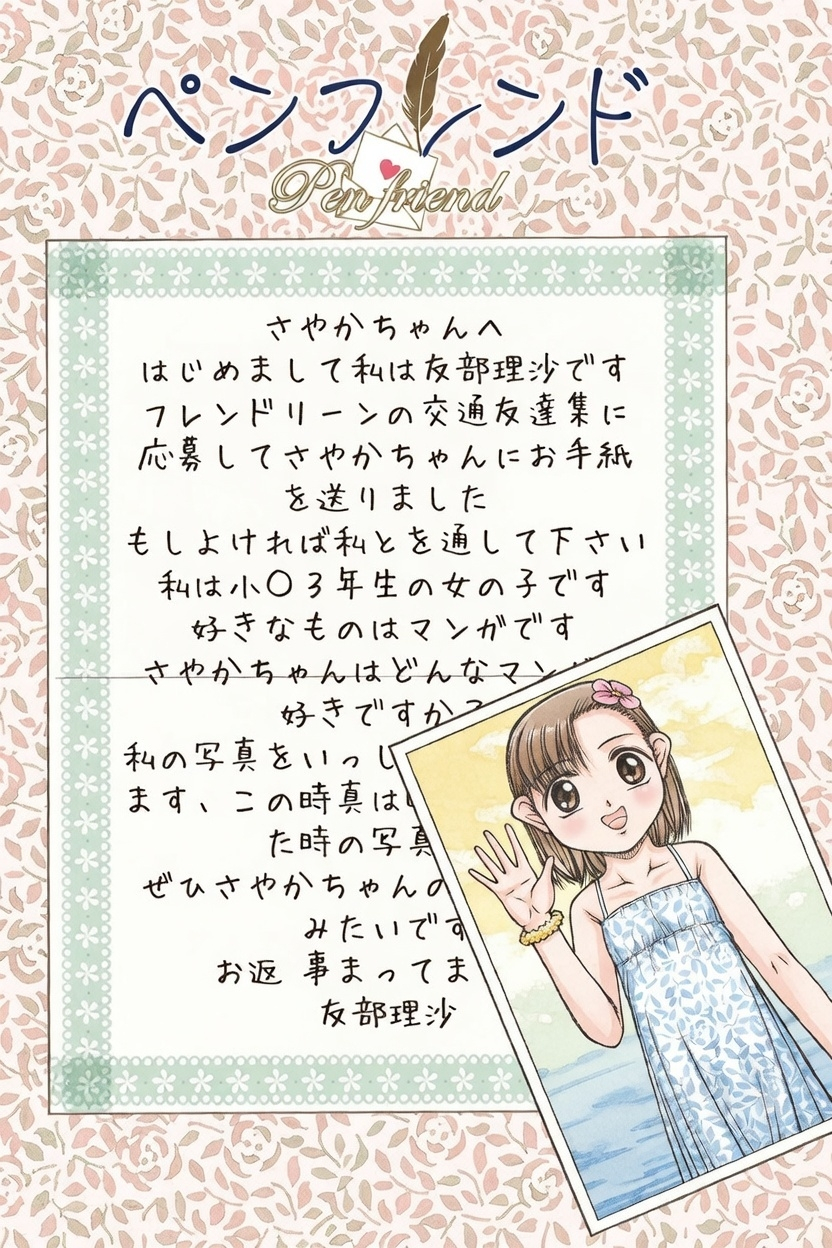 ペンフレンド
Pen friend
さやかちゃんへ
はじめまして私は友部理沙です
フレンドリーンの交通友達集に
応募してさやかちゃんにお手紙
を送りました
もしよければ私とを通して下さい
私は小〇3年生の女の子です
好きなものはマンガです
さやかちゃんはどんなマン
好きですか
私の写真をいっし
ます、この時真は
た時の写真
ぜひさやかちゃんの
みたいです
お返 事まってま
友部理沙